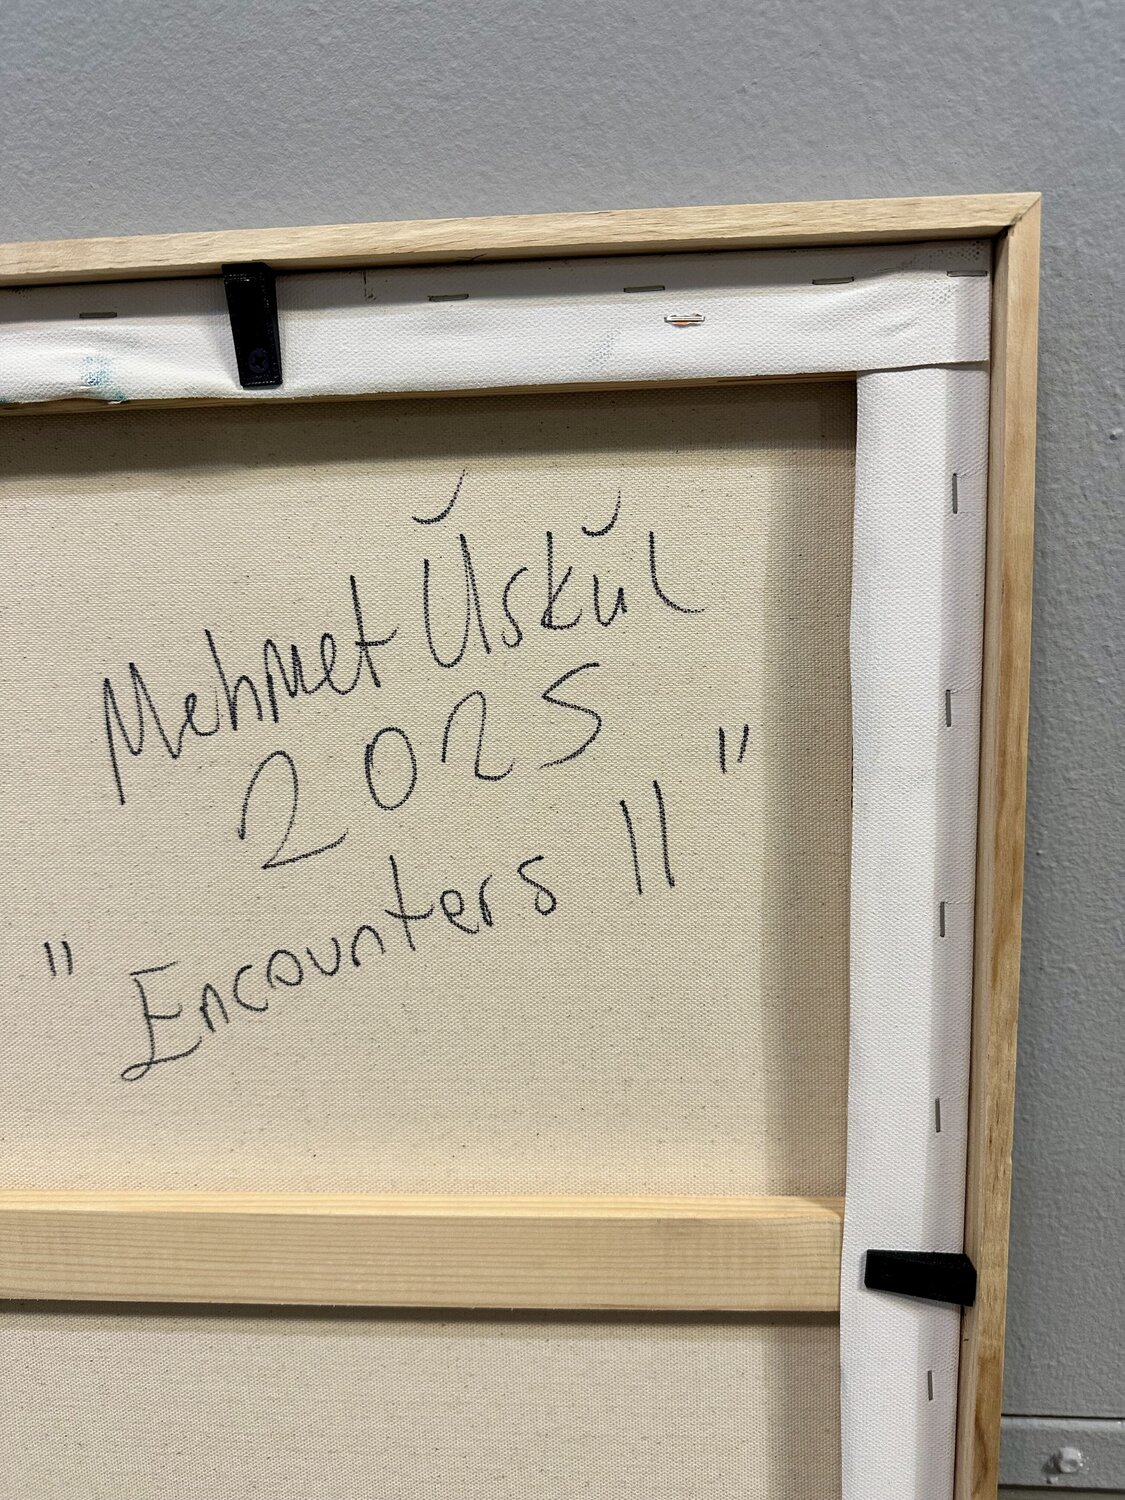 Mehmet Üskül
2025
" Encounters II "